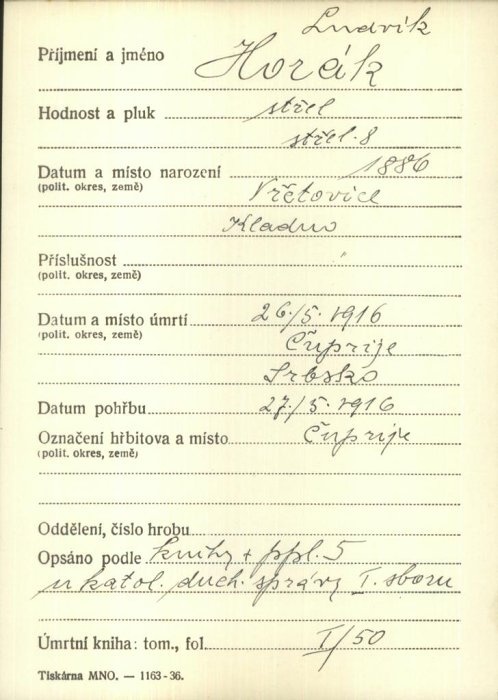 Ludvík
Příjmení a jméno Horák
Hodnost a pluk střel
střel. 8
Datum a místo narození 1886
(polit. okres, země) Vřetovice
Kladno
Příslušnost "
(polit. okres, země)
Datum a místo úmrtí 26./5. 1916
(polit. okres, země) Čuprije
Srbsko
Datum pohřbu 27./5. 1916
Označení hřbitova a místo Čuprije
(polit. okres, země)
Oddělení, číslo hrobu
Opsáno podle knihy + ppl. 5
u katol. duch. správy I. sboru
Úmrtní kniha: tom., fol. I/50
Tiskárna MNO. — 1163-36.